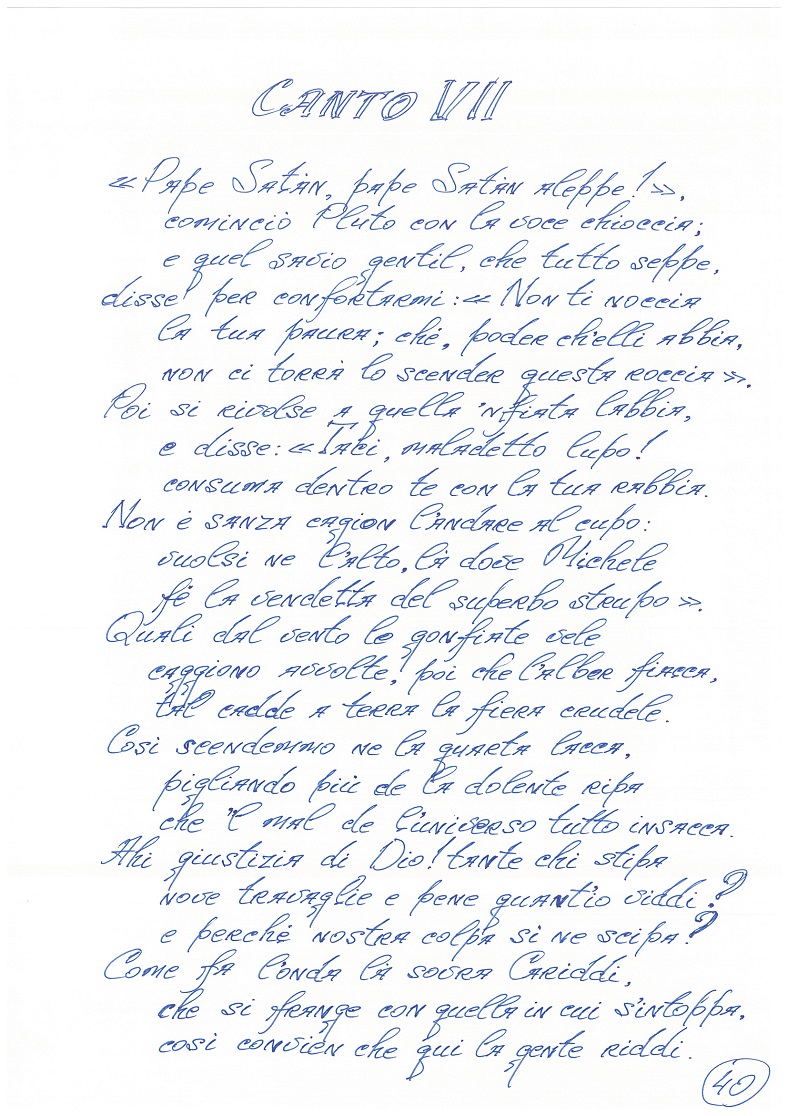 CANTO VII
«Pape Satàn, pape Satàn aleppe!»,
cominciò Pluto con la voce chioccia;
e quel savio gentil, che tutto seppe,
disse per confortarmi: «Non ti noccia
la tua paura; ché, poder ch'elli abbia,
non ci torrà lo scender questa roccia».
Poi si rivolse a quella 'nfiata labbia,
e disse: «Taci, maladetto lupo!
consuma dentro te con la tua rabbia.
Non è sanza cagion l'andare al cupo:
vuolsi ne l'alto, là dove Michele
fé la vendetta del superbo strupo».
Quali dal vento le gonfiate vele
caggiono avvolte, poi che l'alber fiacca,
tal cadde a terra la fiera crudele.
Così scendemmo ne la quarta lacca,
pigliando più de la dolente ripa
che 'l mal de l'universo tutto insacca.
Ahi giustizia di Dio! tante chi stipa
nove travaglie e pene quant'io viddi?
e perché nostra colpa sì ne scipa?
Come fa l'onda là sovra Cariddi,
che si frange con quella in cui s'intoppa,
così convien che qui la gente riddi.
40